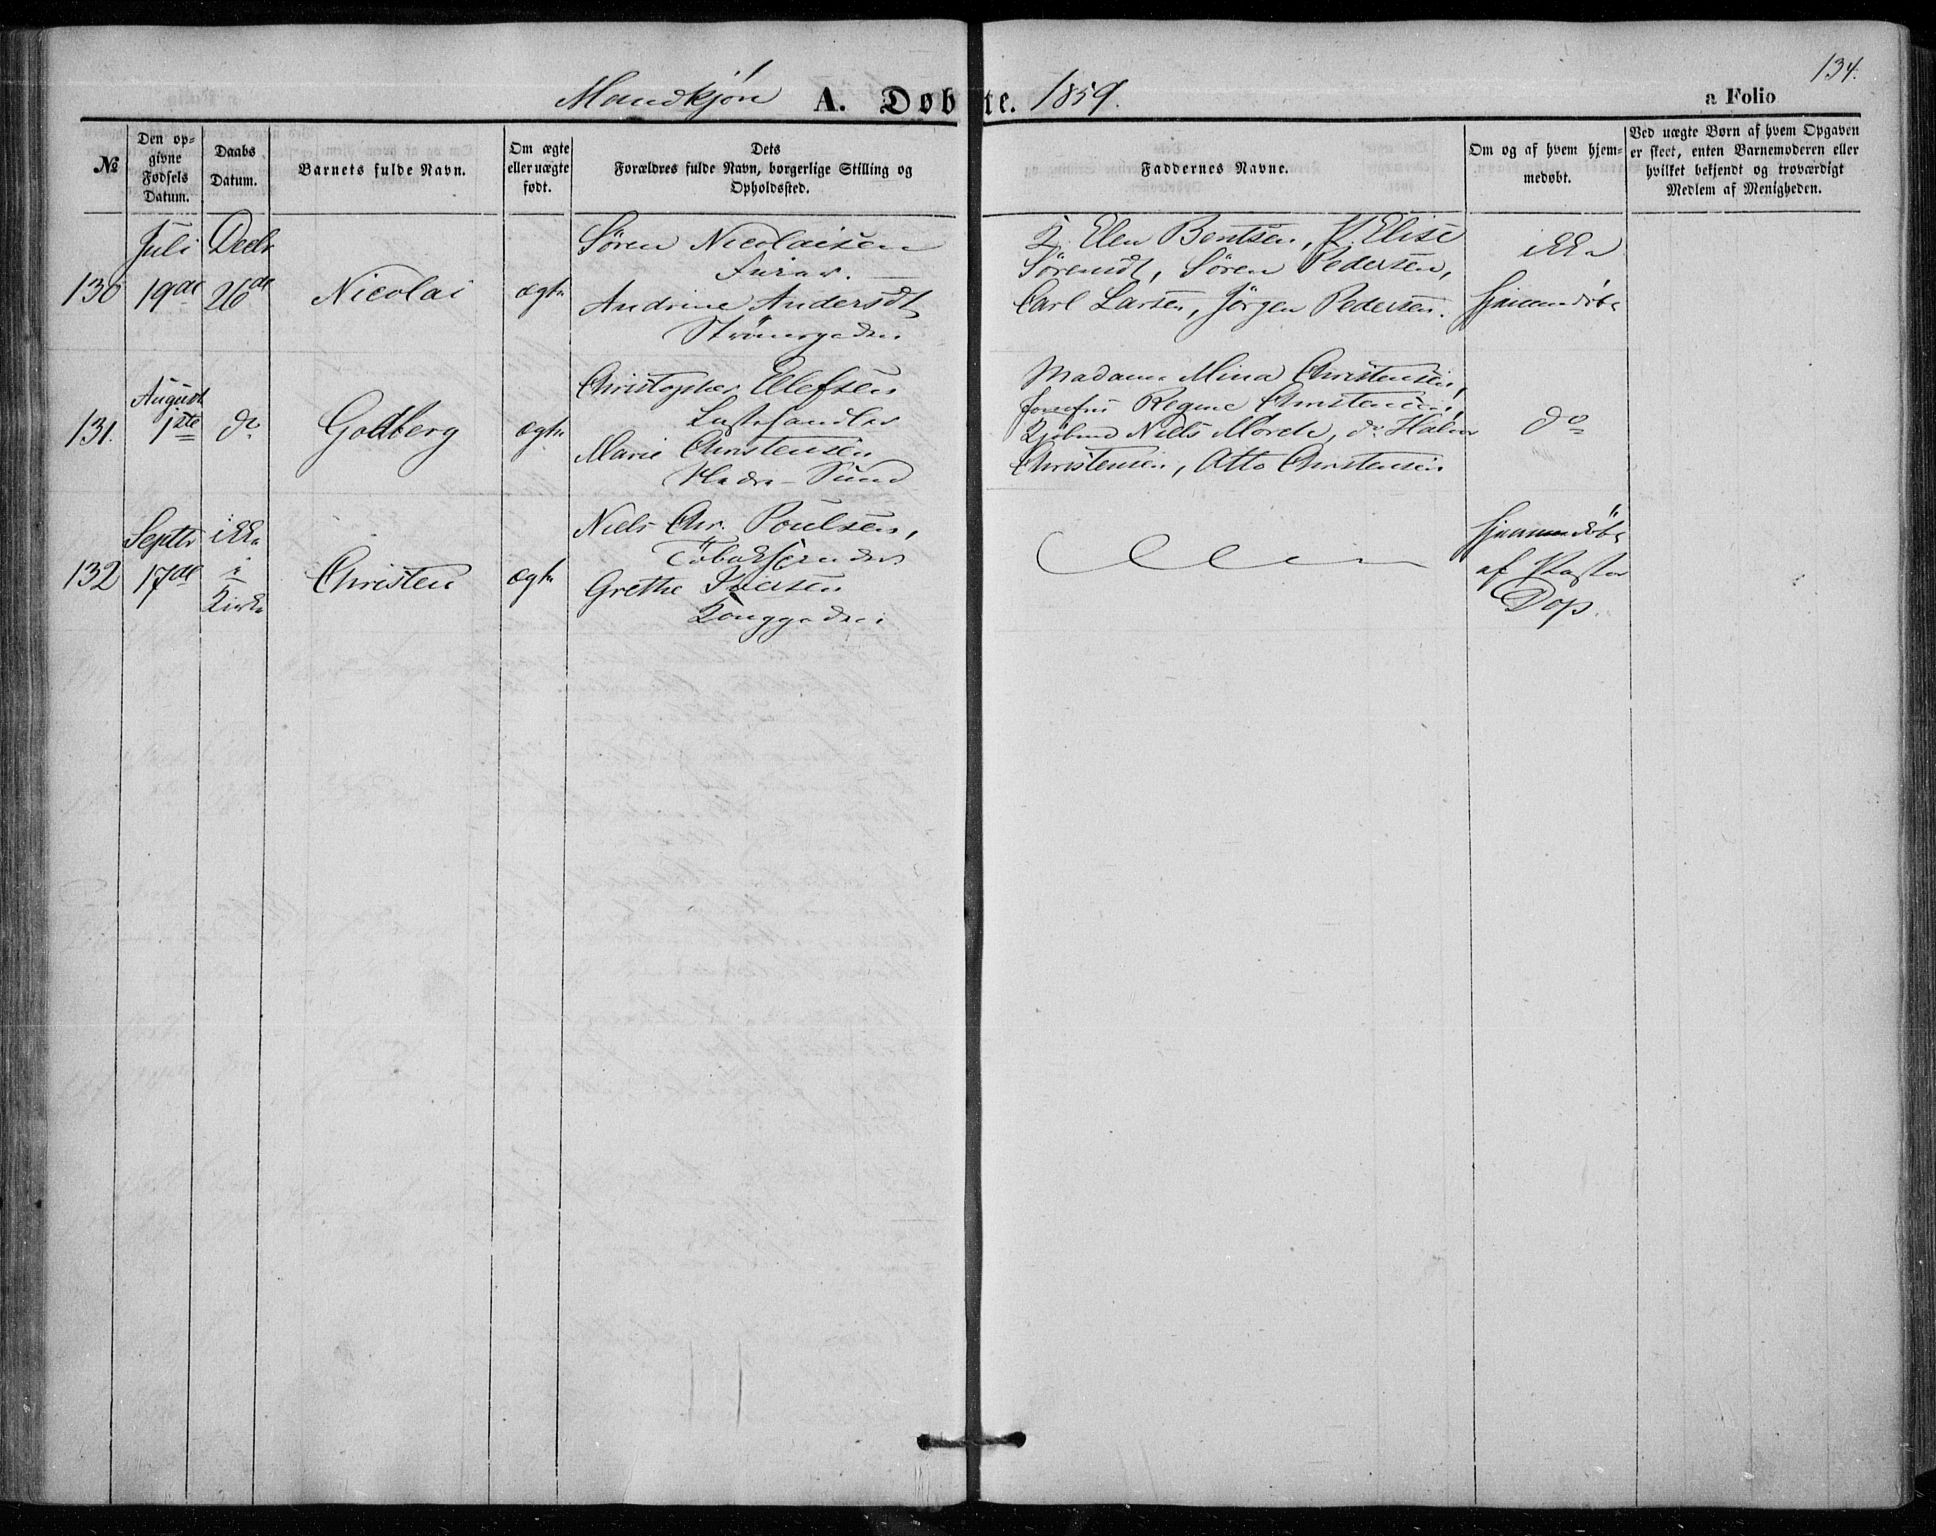 134.
Mandkjøn A. Døbte. 1859.
a Folio
№
Den opgivne Fødsels Datum.
Daabs Datum.
Barnets fulde Navn.
Om ægte eller uægte født.
Dets
Forældres fulde Navn, borgerlige Stilling og
Opholdssted.
Faddernes Navne.
Om og af hvem hjemmedøbt.
Ved uægte Børn af hvem Opgaven
er skeet, enten Barnemoderen eller
hvilket bekjendt og troværdigt
Medlem af Menigheden.
130
Juli
19de
Decbr
26de
Nicolai
ægte
Søren Nicolaisen
Andrine Andersdt
K. Elen Bentsen, P. Elise
Sørensdt, Søren Pedersen,
Carl Larsen, Jørgen Pedersen.
ikke
hjemmedøbt
131.
August
1ste
do
Godberg
ægte
Christopher Ellefsen
Marie Christensen
Sund
Madame Mina Christensen,
Jomfru Regine Christensen,
Niels do
Christensen, Otto Christensen
do
132
Septbr
17de
ikke
i
Kirke
Christen
ægte
Niels Chr. Poulsen,
Grethe
hjemmedøbt
af Pastor
Dop.